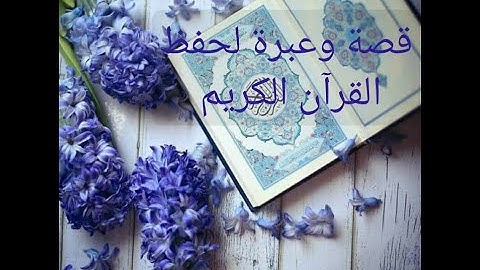 قصة وعبرة لحفظ
القرآن الكريم